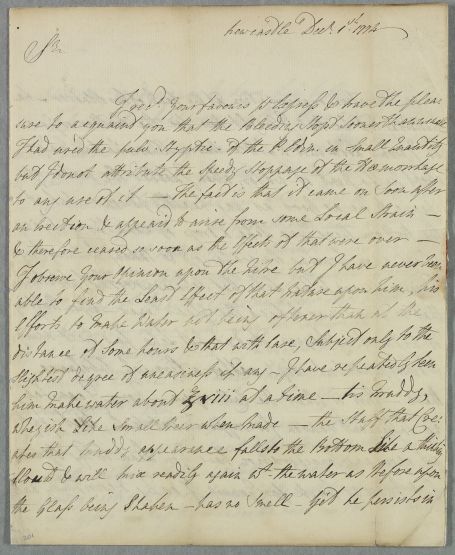 Newcastle Decr. 1st. 1774
Sir
I recd. your favours pr Express & have the plea-
sure to acquaint you that the Bleeding stopt sooner than
I had used the pulv. Styptic. of the P. Edin. in small Quantity
but I do not attribute the speedy stoppage of the Hæmorrhage
to any use of it — The fact is that it came on soon after
an erection & appeard to arise from some Local Strain —
& therefore ceased so soon as the Effects of that were over —
I observe your Opinion upon the Nitre but I have never been
able to find the least Effect of that nature upon him, his
Efforts to make Water not being oftener than at the
distance of some hours & that with ease, Subject only to the
slightest degree of uneasiness if any — I have repeatedly seen
him make water about ℥viii at a time — tis muddy,
Wheyish Like Small beer when made — the Stuff that Cre-
ates that muddy appearance falls to the Bottom like a thick
Cloud & will mix readily again wt. the water as before upon
the Glass being Shaken — has no smell — Yet he persists in
201